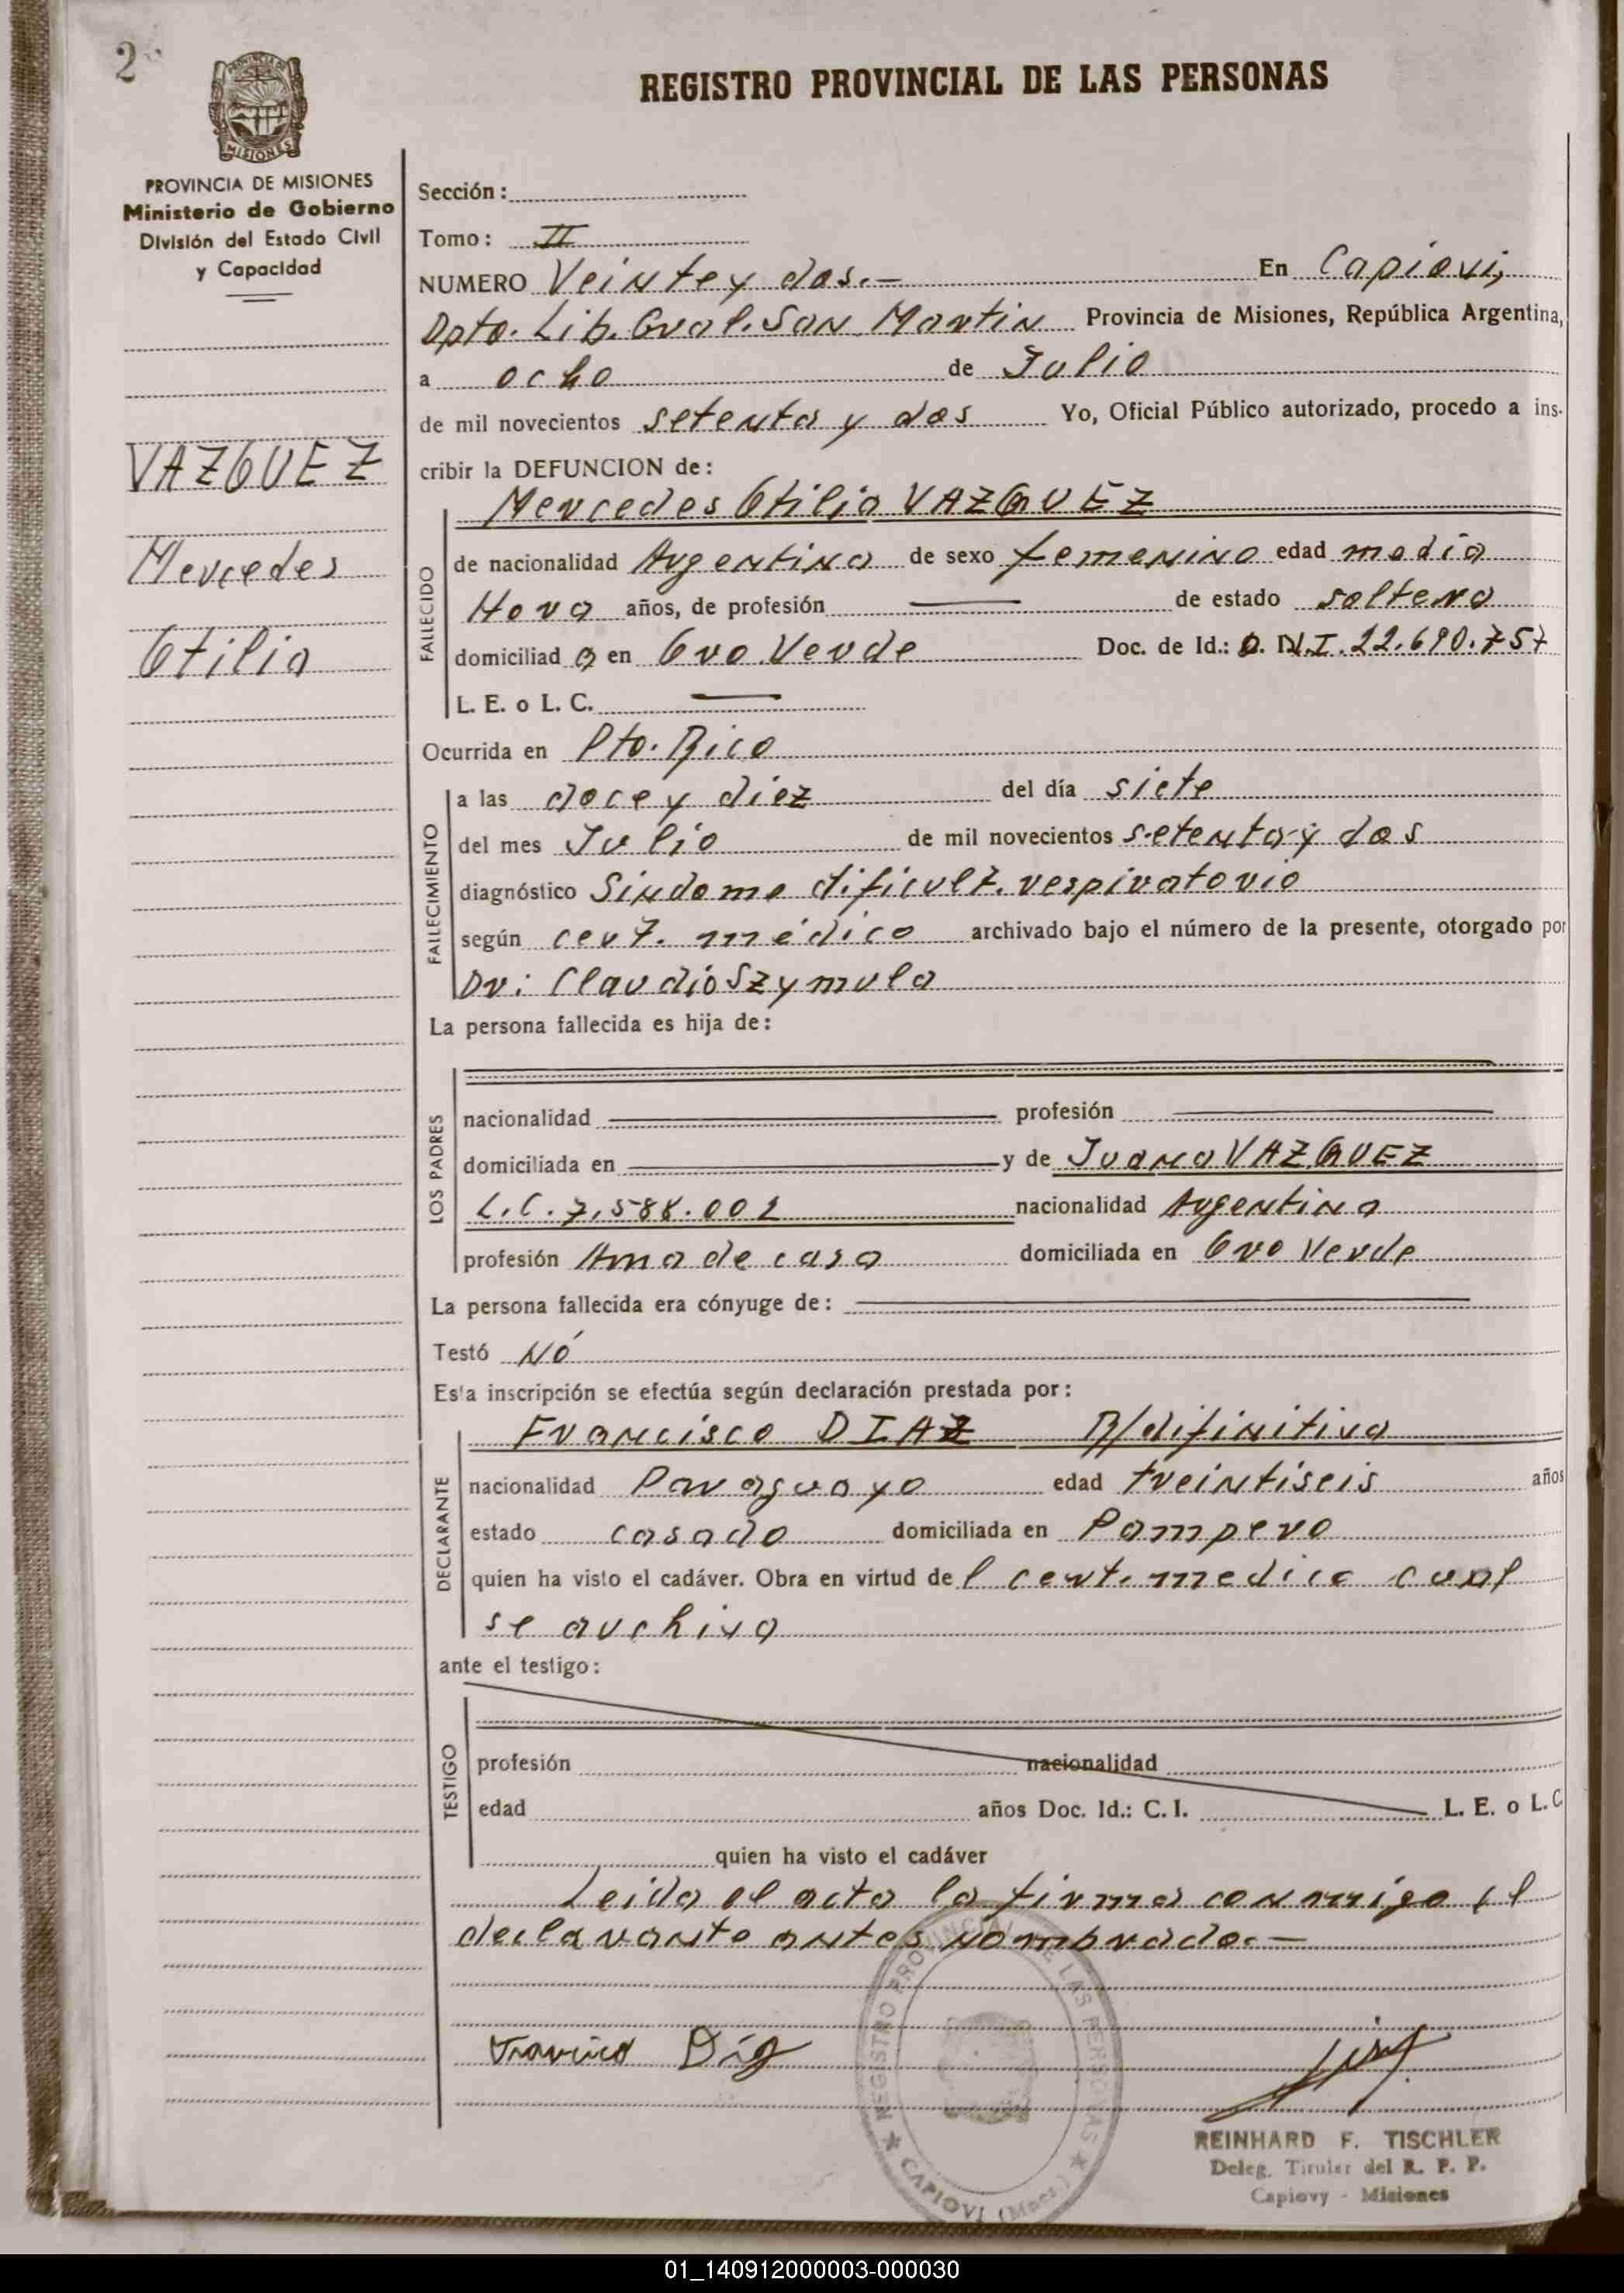 2
REGISTRO PROVINCIAL DE LAS PERSONAS
PROVINCIA DE MISIONES
Ministerio de Gobierno
División del Estado Civil
y Capacidad
VAZQUEZ
Mercedes
Otilia
Sección:
Tomo: II
NUMERO Veinte y dos.- En Capiovi,
Dpto. Lib. Gral. San Martin Provincia de Misiones, República Argentina,
a ocho de Julio
de mil novecientos setenta y dos Yo, Oficial Público autorizado, procedo a ins-
cribir la DEFUNCION de:
Mercedes Otilia VAZQUEZ
FALLECIDO
de nacionalidad Argentina de sexo femenino edad media
Hora años, de profesión — de estado soltera
domiciliad a en Oro Verde Doc. de Id.: D. N.I. 22.690.757
L. E. o L. C. —
Ocurrida en Pto. Rico
FALLECIMIENTO
a las doce y diez del día siete
del mes Julio de mil novecientos setenta y dos
diagnóstico Sindome dificult. respiratorio
según cert. médico archivado bajo el número de la presente, otorgado por
Dr: Claudio Szymula
La persona fallecida es hija de:
LOS PADRES
nacionalidad — profesión —
domiciliada en — y de Juana VAZQUEZ
L.C. 7.588.002 nacionalidad Argentina
profesión Ama de casa domiciliada en Oro Verde
La persona fallecida era cónyuge de: —
Testó Nó
Esta inscripción se efectúa según declaración prestada por:
Francisco DIAZ R/difinitiva
DECLARANTE
nacionalidad Paraguayo edad treintiseis años
estado casado domiciliada en Pampero
quien ha visto el cadáver. Obra en virtud de l cert. medico cual
se archiva
ante el testigo:
TESTIGO
profesión nacionalidad
edad años Doc. Id.: C. I. L. E. o L. C
quien ha visto el cadáver
Leida el acta la firma conmigo el
declarante antes nombrado.-
Díaz
REGISTRO PROVINCIAL DE LAS PERSONAS
CAPIOVI (Mnes.)
REINHARD F. TISCHLER
Deleg. Titular del R. P. P.
Capiovy - Misiones
01_140912000003-000030